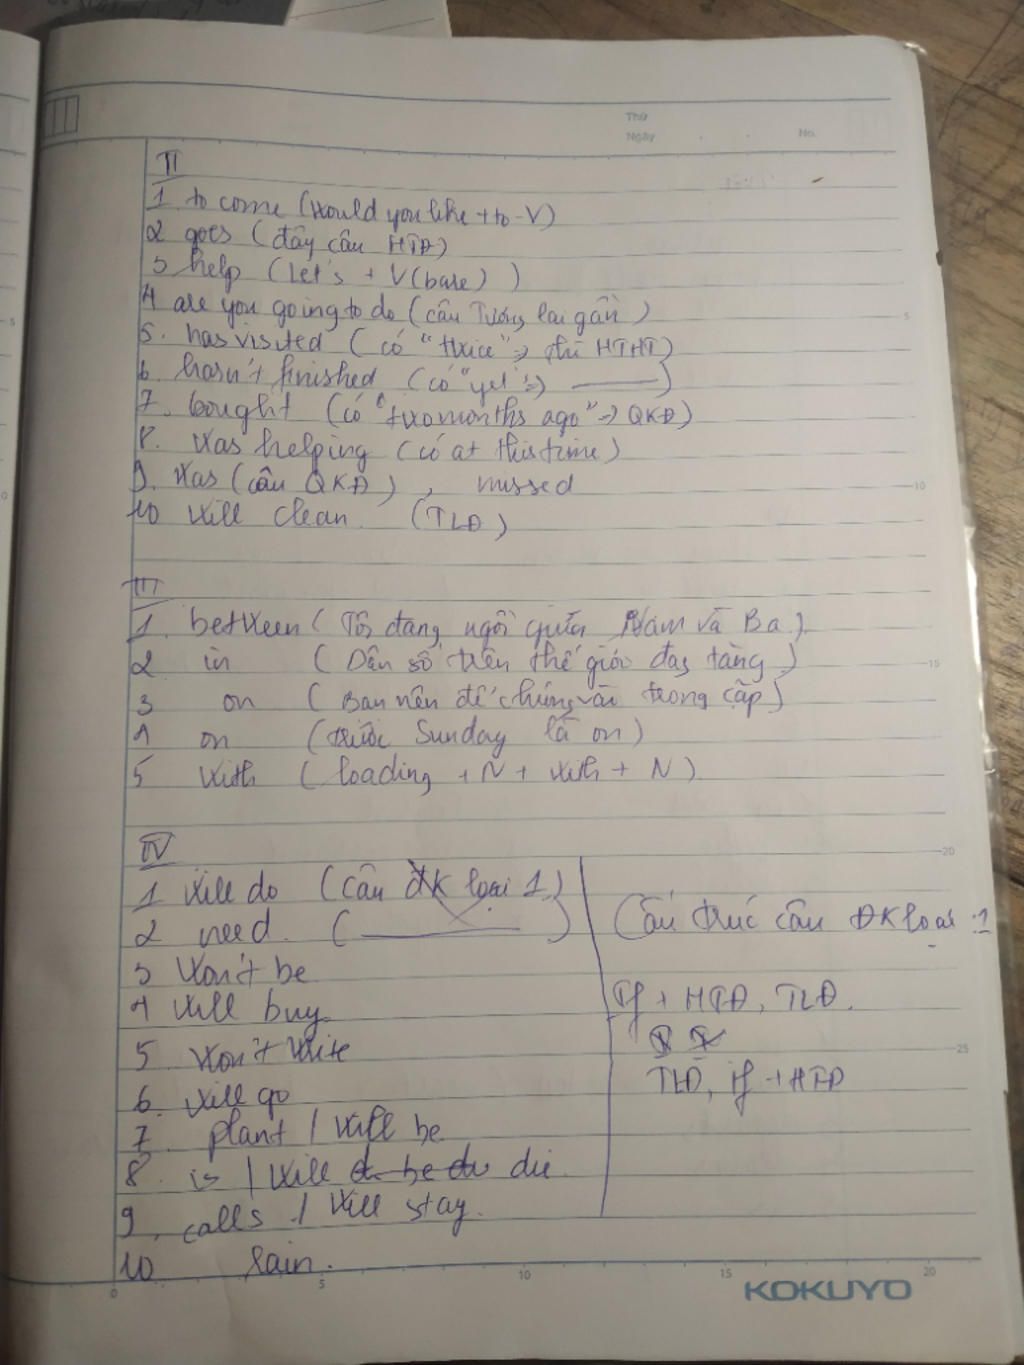 Thứ
Ngày
No.
II
1 to come (would you like + to - V)
2 goes (đây câu HTĐ)
3 help (Let's + V(bare))
4 are you going to do (câu Tương lai gần)
5. has visited (có "twice" => thì HTHT)
6. hasn't finished (có "yet" =>)
7. bought (có "two months ago" => QKĐ)
8. was helping (có at this time)
9. was (câu QKĐ), missed
10 will clean (TLĐ)
III
1. between (Tôi đang ngồi giữa Nam và Ba)
2 in (Dân số trên thế giới đag tăng)
3 on (Bạn nên để chúng vào trong cặp)
4 on (trước Sunday là on)
5 with (loading + N + with + N)
IV
1 will do (Câu ĐK loại 1)
2 need. ( )
3 won't be
4 will buy
5 won't write
6. will go
7. plant / will be
8. is / will be die
9. calls / will stay.
10 rain.
Cấu trúc câu ĐK loại 1
If + HTĐ, TLĐ.
TLĐ, if + HTĐ
5
10
15
20
25
0
5
10
15
20
KOKUYO